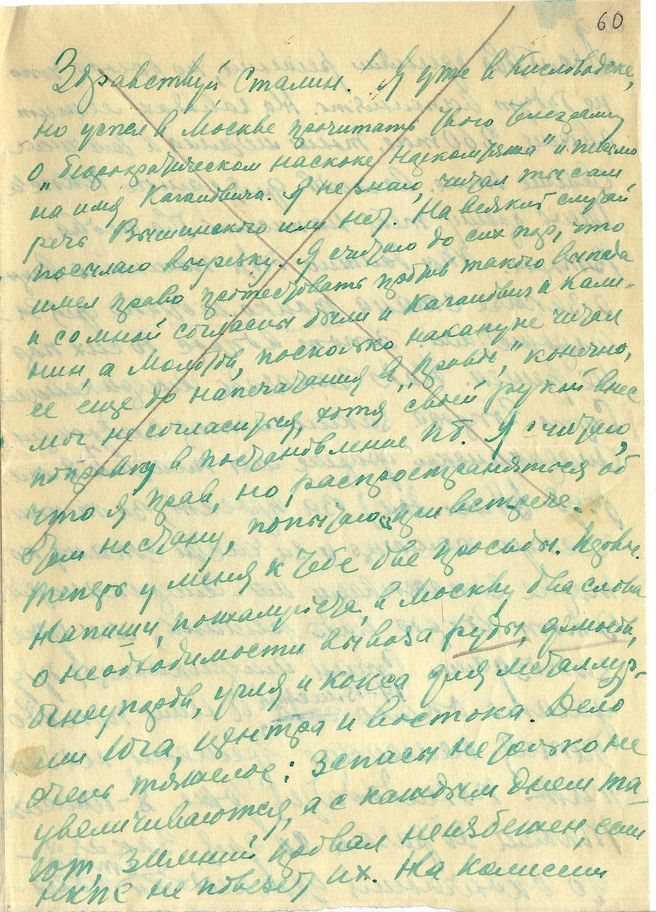 60
Здравствуй Сталин. Я уже в Кисловодске,
но успел в Москве прочитать твою телеграмму
о „бюрократическом наскоке Наркомтяжа" и письмо
на имя Кагановича. Я не знаю, читал ты сам
речь Вышинского или нет. На всякий случай
посылаю вырезку. Я считаю до сих пор, что
имел право протестовать против такого выпада
и со мной согласны были и Каганович и Кали-
нин, а Молотов, поскольку накануне читал
ее еще до напечатания в „Правде," конечно,
мог не согласиться, хотя своей рукой внес
поправку в постановление ПБ. Я считаю,
что я прав, но распространяться об
этом не стану, попытаюсь при встрече.
Теперь у меня к тебе две просьбы.
Напиши, пожалуйста, в Москву два слова
о необходимости вывоза руды, флюсов,
огнеупоров, угля и кокса для металлур-
гии Юга, центра и востока. Дело
очень тяжелое: запасы не только не
увеличиваются, а с каждым днем та-
ют, зимний провал неизбежен, если
НКПС не повезет их. На комиссии